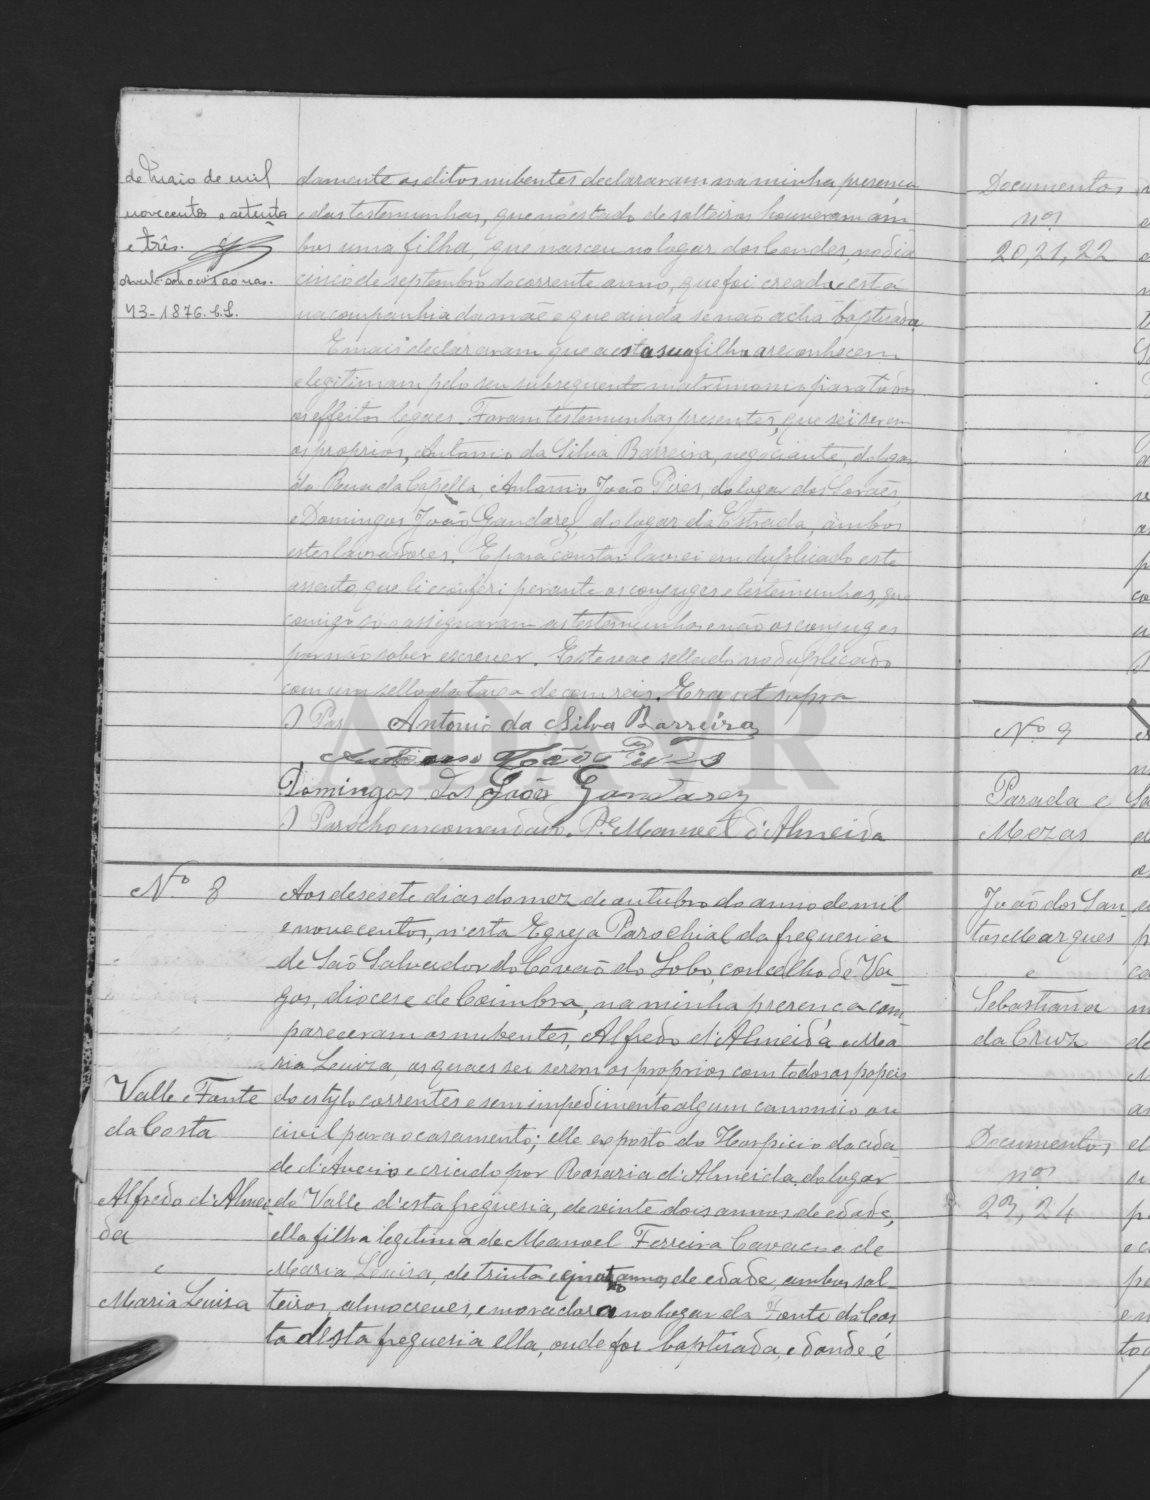 de Maio de mil
novecentos e setenta
e três.
43-1876. C.S.
damente os ditos nubentes declararam na minha presença
e das testemunhas, que no estado de solteiros houveram am
bos uma filha, que nasceu no lugar dos Condes, no dia
cinco de septembro do corrente anno, que foi creada e está
na companhia da mãe e que ainda se não acha baptisada
E mais declararam que a esta sua filha a reconhecem
e legitimam pelo seu subsequente matrimonio para todos
os effeitos legaes. Foram testemunhas presentes, que sei serem
os proprios, Antonio da Silva Barreira, negociante, do logar
da Rua da Capella, Antonio João Pires, do lugar dos
e Domingos João Gandarez, do lugar da Estrada, ambos
estes lavradores. E para constar lavrei em duplicado este
assento que li e conferi perante os conjuges e testemunhas, que
comigo só assignaram as testemunhas e não os conjuges
por não saber escrever. Este vae sellado no duplicado
com um sello da taxa de cem reis. Era ut supra
Antonio da Silva Barreira
Antonio João Pires
Domingos dos João Gandarez
O Parocho encomendado. P.e Manoel d'Almeida
Nº 8
Valle e Fonte
da Costa
Alfredo d'Almei
da
e
Maria Luisa
Aos desesete dias do mez de outubro do anno de mil
e novecentos, n'esta Egreja Parochial da freguesia
de São Salvador do Covão do Lobo, concelho de Va-
gos, diocese de Coimbra, na minha presença com
pareceram os nubentes, Alfredo d'Almeida e Ma
ria Luiza, os quaes sei serem os proprios com todos os papeis
do estylo correntes e sem impedimento algum canonico ou
civil para o casamento; elle exposto do Hospicio da cida
de d'Aveiro e criado por Rosaria d'Almeida, do lugar
do Valle d'esta freguesia, de vinte dois annos de edade,
ella filha legitima de Manoel Ferreira Cavaco e de
Maria Luisa, de trinta e quatro annos de edade, ambos sol-
teiros, almocreves, e moradora no lugar da Fonte da Cos
ta desta freguesia ella, onde foi baptisada, e donde é
Documentos
nos
20, 21, 22
Nº 9
Parada e
Mezas
João dos San-
tos Marques
e
Sebastiana
da Cruz
Documentos
nos
23, 24
ADAVR